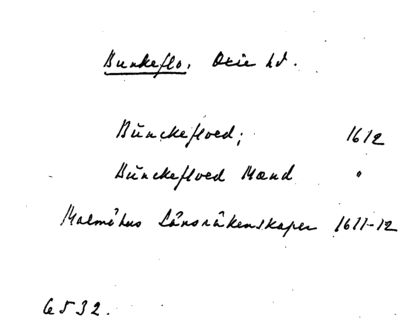 Bunkeflo, Oxie hd.
Bŭnckefloed; 1612
Bŭnckefloed Mænd "
Malmöhus Länsräkenskaper 1611-12
6532.